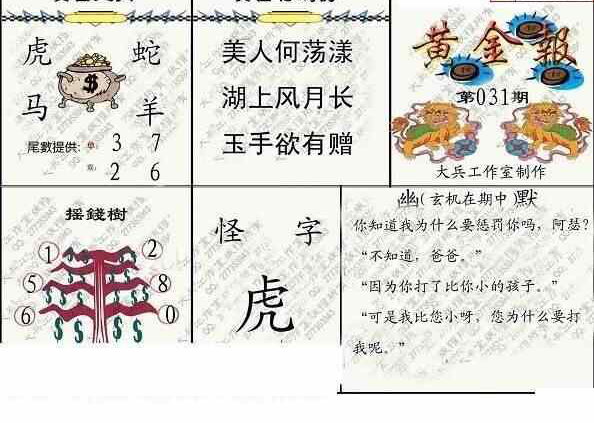 虎 蛇
$
马 羊
尾數提供: 单: 3 7
双: 2 6
美人何荡漾
湖上风月长
玉手欲有赠
黄金報
第031期
大兵工作室制作
摇錢樹
1 2
5 8
6 0
怪 字
虎
幽(玄机在期中)默
你知道我为什么要惩罚你吗，阿瑟?
“不知道，爸爸。”
“因为你打了比你小的孩子。”
“可是我比您小呀，您为什么要打
我呢。”